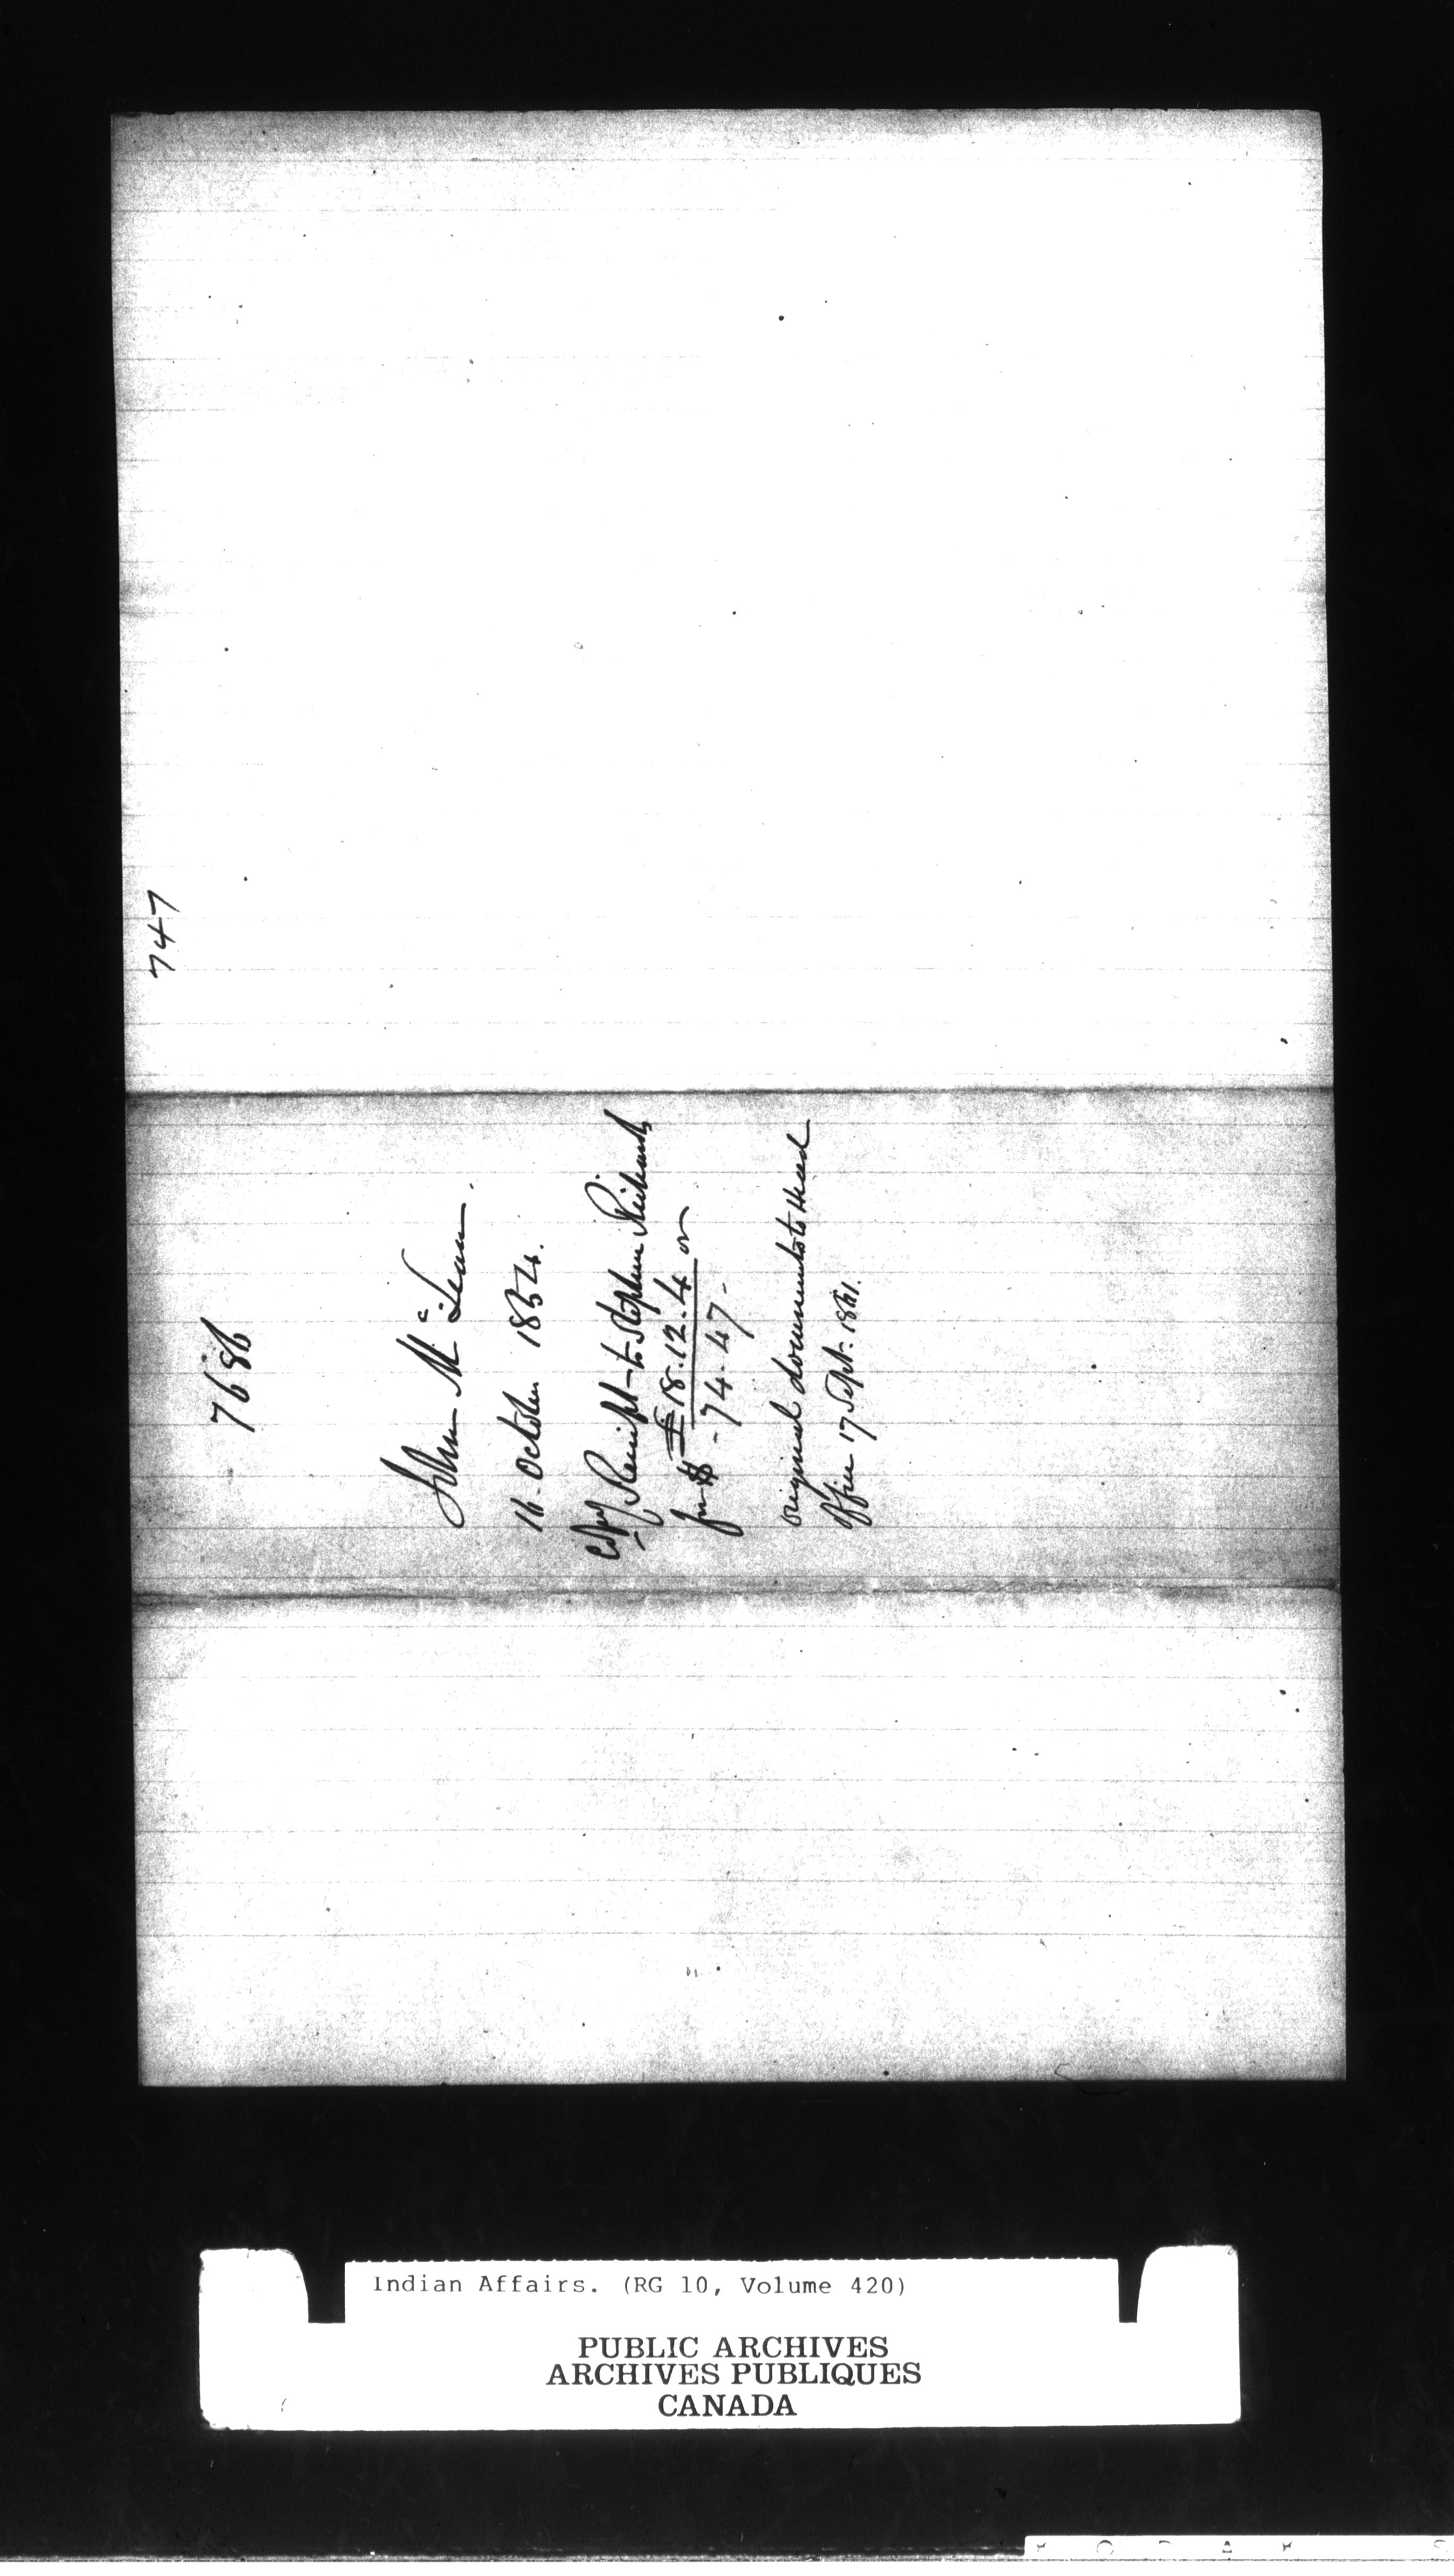 747
7686
John McLean.
16 October 1854.
Copy Receipt to Stephen Richards
for £18.12.4 or
$ - 74.47 -
Original documents to Head
Office 17 Sept. 1861.
Indian Affairs. (RG 10, Volume 420)
PUBLIC ARCHIVES
ARCHIVES PUBLIQUES
CANADA